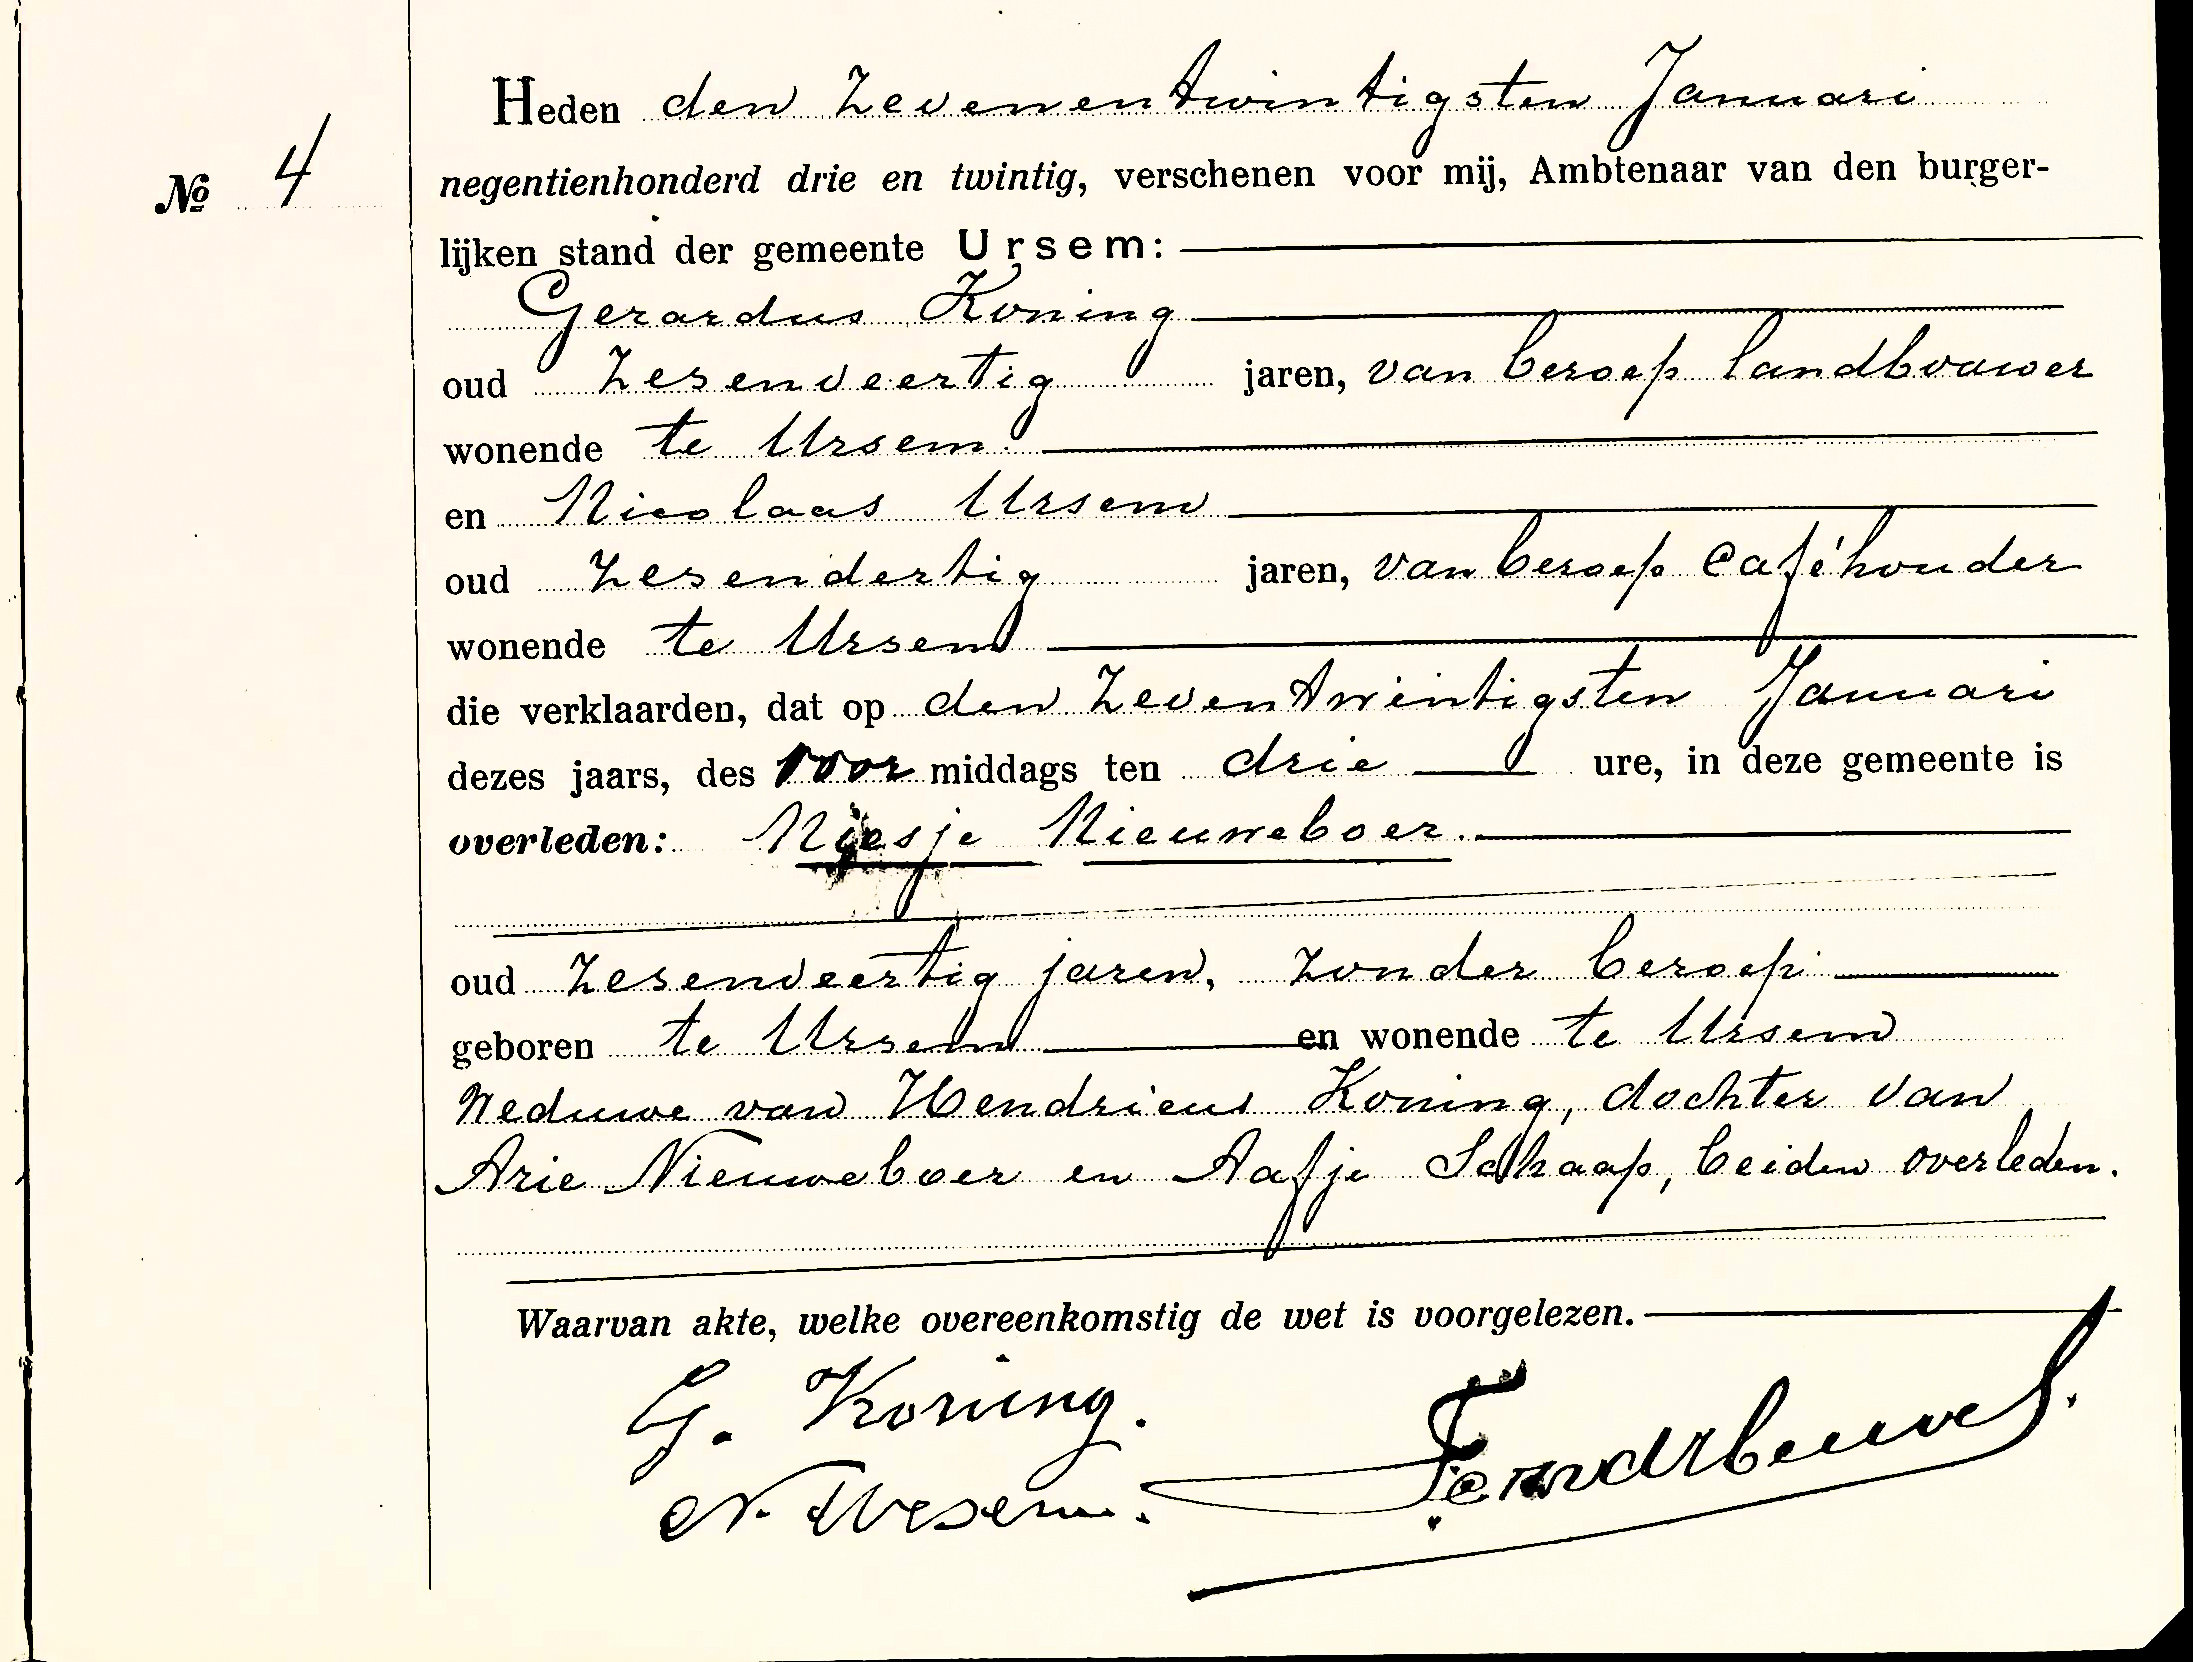 Heden den Zevenentwintigsten Januari
negentienhonderd drie en twintig, verschenen voor mij, Ambtenaar van den burger-
№ 4
lijken stand der gemeente Ursem:
Gerardus Koning
oud Zesenveertig jaren, van beroep landbouwer
wonende te Ursem
en Nicolaas Ursem
oud Zesendertig jaren, van beroep caféhouder
wonende te Ursem
die verklaarden, dat op den Zeventwintigsten Januari
dezes jaars, des voor middags ten drie ure, in deze gemeente is
overleden: Niesje Nieuweboer.
oud Zesenveertig jaren, zonder beroep
geboren te Ursem en wonende te Ursem
Weduwe van Hendricus Koning, dochter van
Arie Nieuweboer en Aafje Schaap, beiden overleden.
Waarvan akte, welke overeenkomstig de wet is voorgelezen.
G. Koning.
N. Ursem.